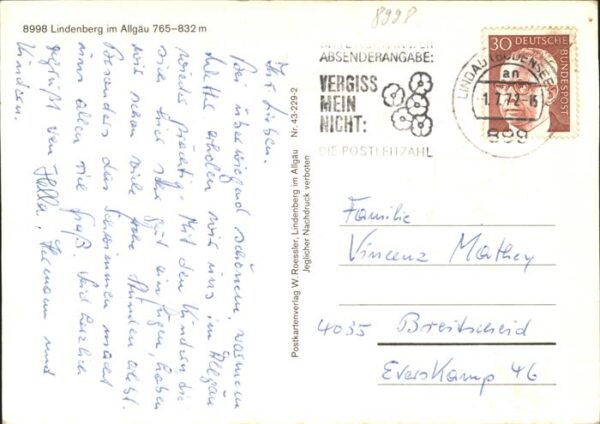 8998
8998 Lindenberg im Allgäu 765–832 m
Ihr Lieben.
Bei überwiegend schönem, warmem
Wetter erholen wir uns im Allgäu
wieder prächtig. Mit den Kindern die
sich hier sehr gut haben
wir schon viele frohe Stunden erlebt.
Besonders das Schwimmen macht
uns allen viel Spaß. Seid herzlich
gegrüßt von Hella, Hermann und
Kindern.
Postkartenverlag W. Roessler, Lindenberg im Allgäu Nr. 43-229-2
Jeglicher Nachdruck verboten
ABSENDERANGABE:
VERGISS
MEIN
NICHT:
DIE POSTLEITZAHL
LINDAU (BODENSEE)
an
1.7.72-15
899
30 DEUTSCHE
BUNDESPOST
Familie
Vincenz Mathey
4035 Breitscheid
Everskamp 46